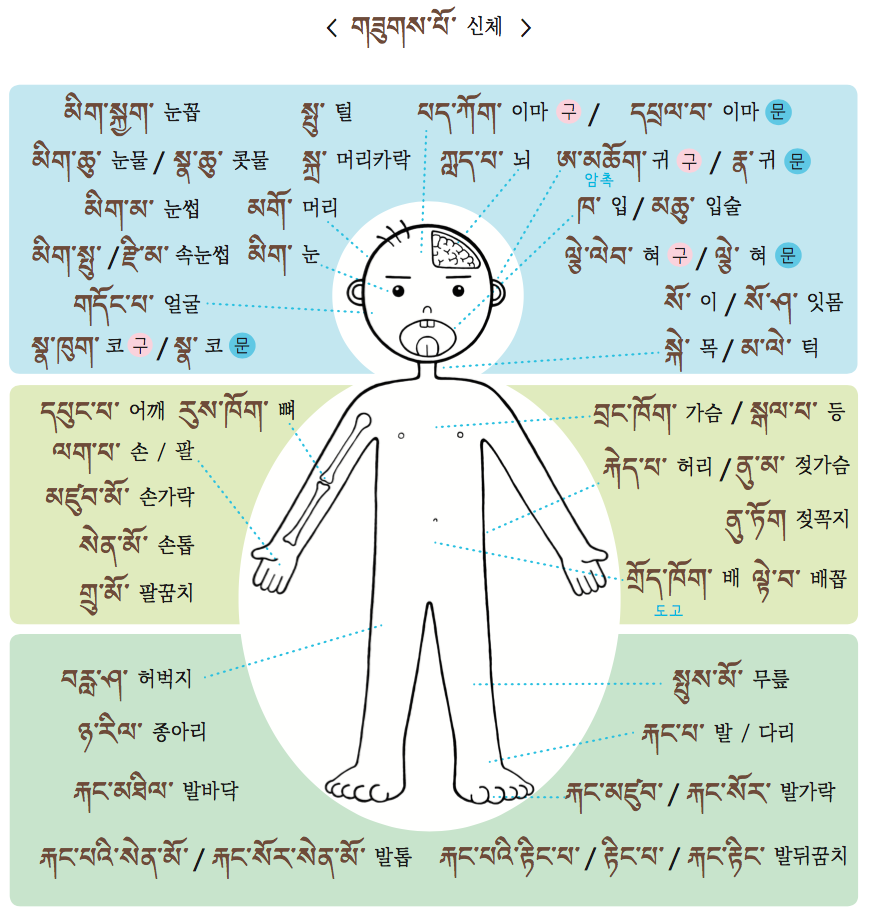 < གཟུགས་པོ་ 신체 >
མིག་སྐྱག་ 눈꼽 སྤུ་ 털 པད་ཀོག་ 이마 구 / དཔྲལ་བ་ 이마 문
མིག་ཆུ་ 눈물 / སྣ་ཆུ་ 콧물 སྐྲ་ 머리카락 ཀླད་པ་ 뇌 ཨ་མཆོག་ 귀 구 / རྣ་ 귀 문
암촉
མིག་མ་ 눈썹 མགོ་ 머리 ཁ་ 입 / མཆུ་ 입술
མིག་སྤུ་ / རྫི་མ་ 속눈썹 མིག་ 눈 ལྕེ་ལེབ་ 혀 구 / ལྕེ་ 혀 문
གདོང་པ་ 얼굴 སོ་ 이 / སོ་ཤ་ 잇몸
སྣ་ཁུག་ 코 구 / སྣ་ 코 문 སྐེ་ 목 / མ་ལེ་ 턱
དཔུང་པ་ 어깨 རུས་ཁོག་ 뼈 བྲང་ཁོག་ 가슴 / སྒལ་པ་ 등
ལག་པ་ 손 / 팔 རྐེད་པ་ 허리 / ནུ་མ་ 젖가슴
མཛུབ་མོ་ 손가락 ནུ་ཏོག 젖꼭지
སེན་མོ་ 손톱
གྲུ་མོ་ 팔꿈치 གྲོད་ཁོག་ 배 ལྟེ་བ་ 배꼽
도고
བརླ་ཤ་ 허벅지 སྤུས་མོ་ 무릎
ཉ་རིལ་ 종아리 རྐང་པ་ 발 / 다리
རྐང་མཐིལ་ 발바닥 རྐང་མཛུབ་ / རྐང་སོར་ 발가락
རྐང་པའི་སེན་མོ་ / རྐང་སོར་སེན་མོ་ 발톱 རྐང་པའི་རྟིང་པ་ / རྟིང་པ་ / རྐང་རྟིང་ 발뒤꿈치